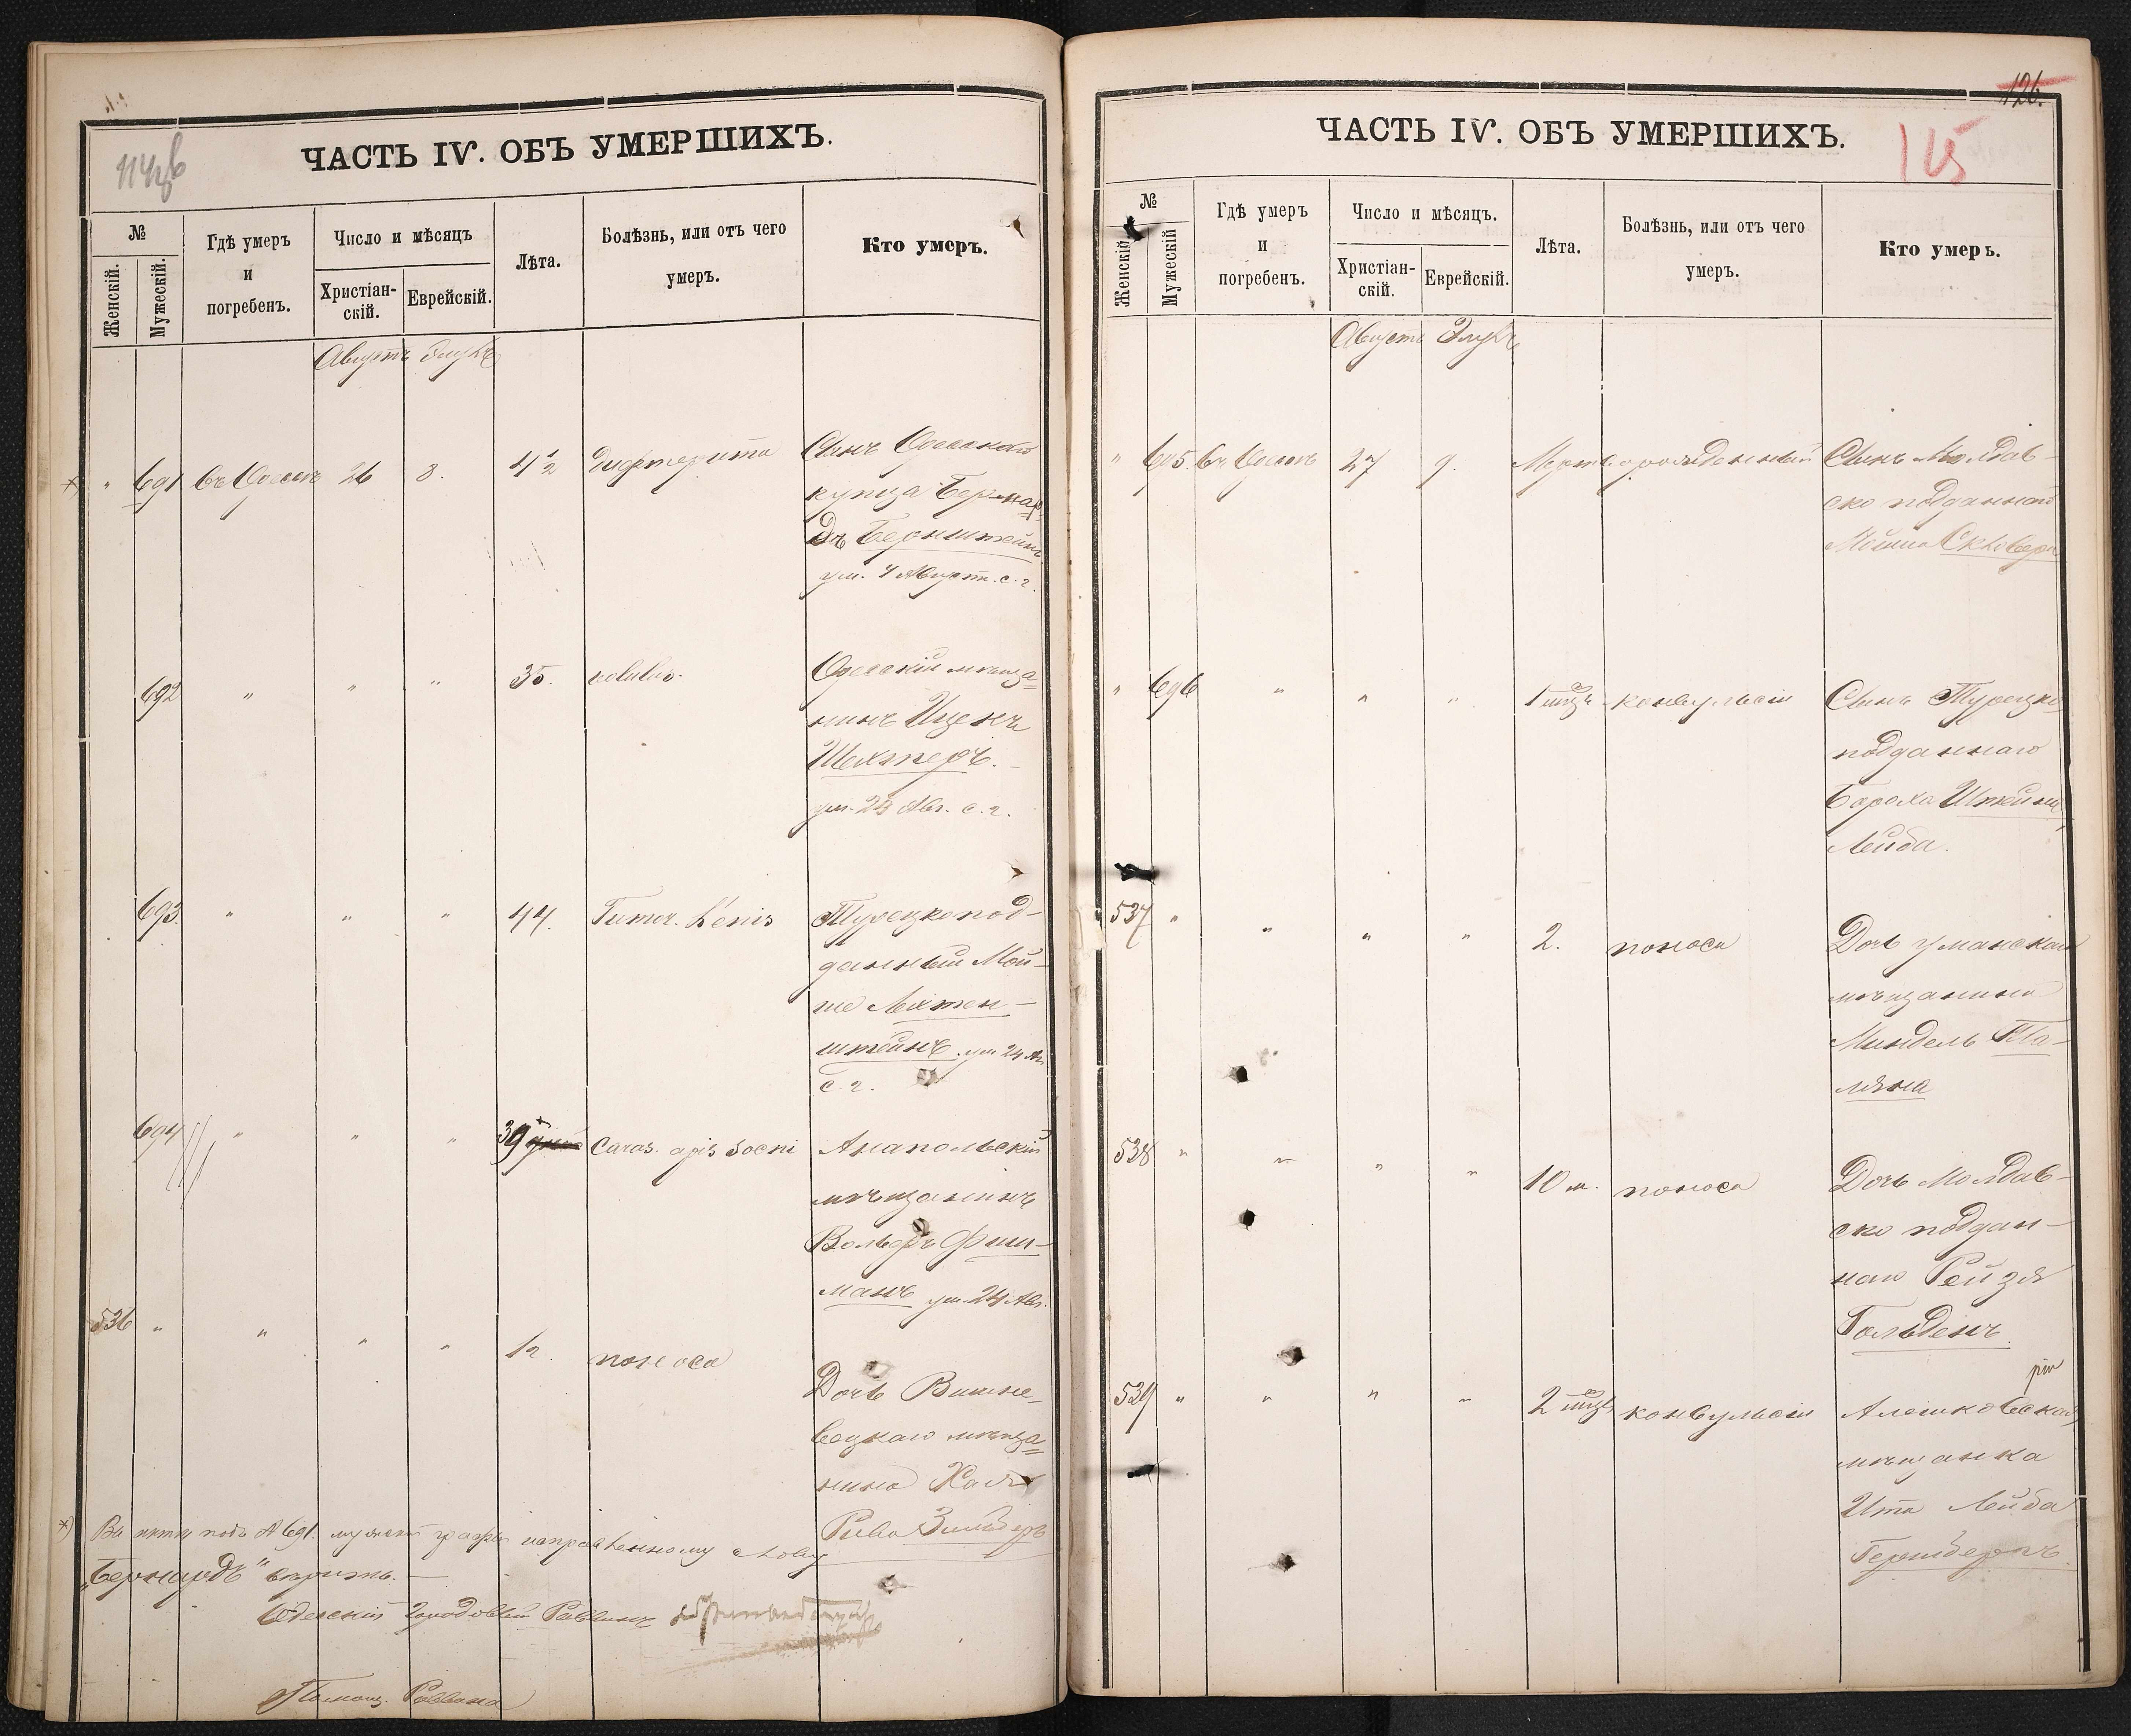 ЧАСТЬ IV. ОБЪ УМЕРШИХЪ.
№
Женскій.
Мужескій.
Гдѣ умеръ
и
погребенъ.
Число и мѣсяцъ
Христіан-
скій.
Еврейскій.
Лѣта.
Болѣзнь, или отъ чего
умеръ.
Кто умеръ.
Августъ Элулъ
*) " 691 въ Одессѣ 26 8. 4½ Дифтерита Сынъ Одесскаго
купца Бернар-
дъ Бернштейнъ
ум. 4 Август. с. г.
692 " " " 35. volulus. Одесскій мѣща-
нинъ Ицекъ
Шехтеръ.
ум. 24 Авг. с. г.
693 " " " 44. Tumor. Турецкопод-
данный Мой-
ше Лихтен-
штейнъ. ум 24 Ав
с. г.
694 " " " 39 Анапольскій
мѣщанинъ
Вольфъ Фиш-
манъ ум. 24 Авг.
536 " " " " поноса Дочь Вишне-
вецкаго мѣща-
нина Хая
Рива
*) Въ актѣ подъ № 691. мужской графы исправленному слову
„Бернардъ" вѣрить.
Одесскій Городовой Раввинъ
Помощ. Раввина
126.
115
ЧАСТЬ IV. ОБЪ УМЕРШИХЪ.
№
Женскій
Мужескій
Гдѣ умеръ
и
погребенъ.
Число и мѣсяцъ.
Христіан-
скій.
Еврейскій.
Лѣта.
Болѣзнь, или отъ чего
умеръ.
Кто умеръ.
Августъ Элулъ
" 695. въ Одессѣ 27 9. Мертворожденный Сынъ Молдав-
ско подданнаго
Мошка
" 696 " " " 1 мѣс. конвульсіи Сынъ Турецко
подданнаго
Бороха Штейнъ,
Лейба.
537 " " " " 2. поноса Дочь уманскаго
мѣщанина
Миндель Па-
538 " " " " 10 м. поноса Дочь Молдав-
ско поддан-
наго Рейзя
Гольденъ
539 " " " " 2 мѣс. конвульсіи Алешковская
мѣщанка
Ита Лейба